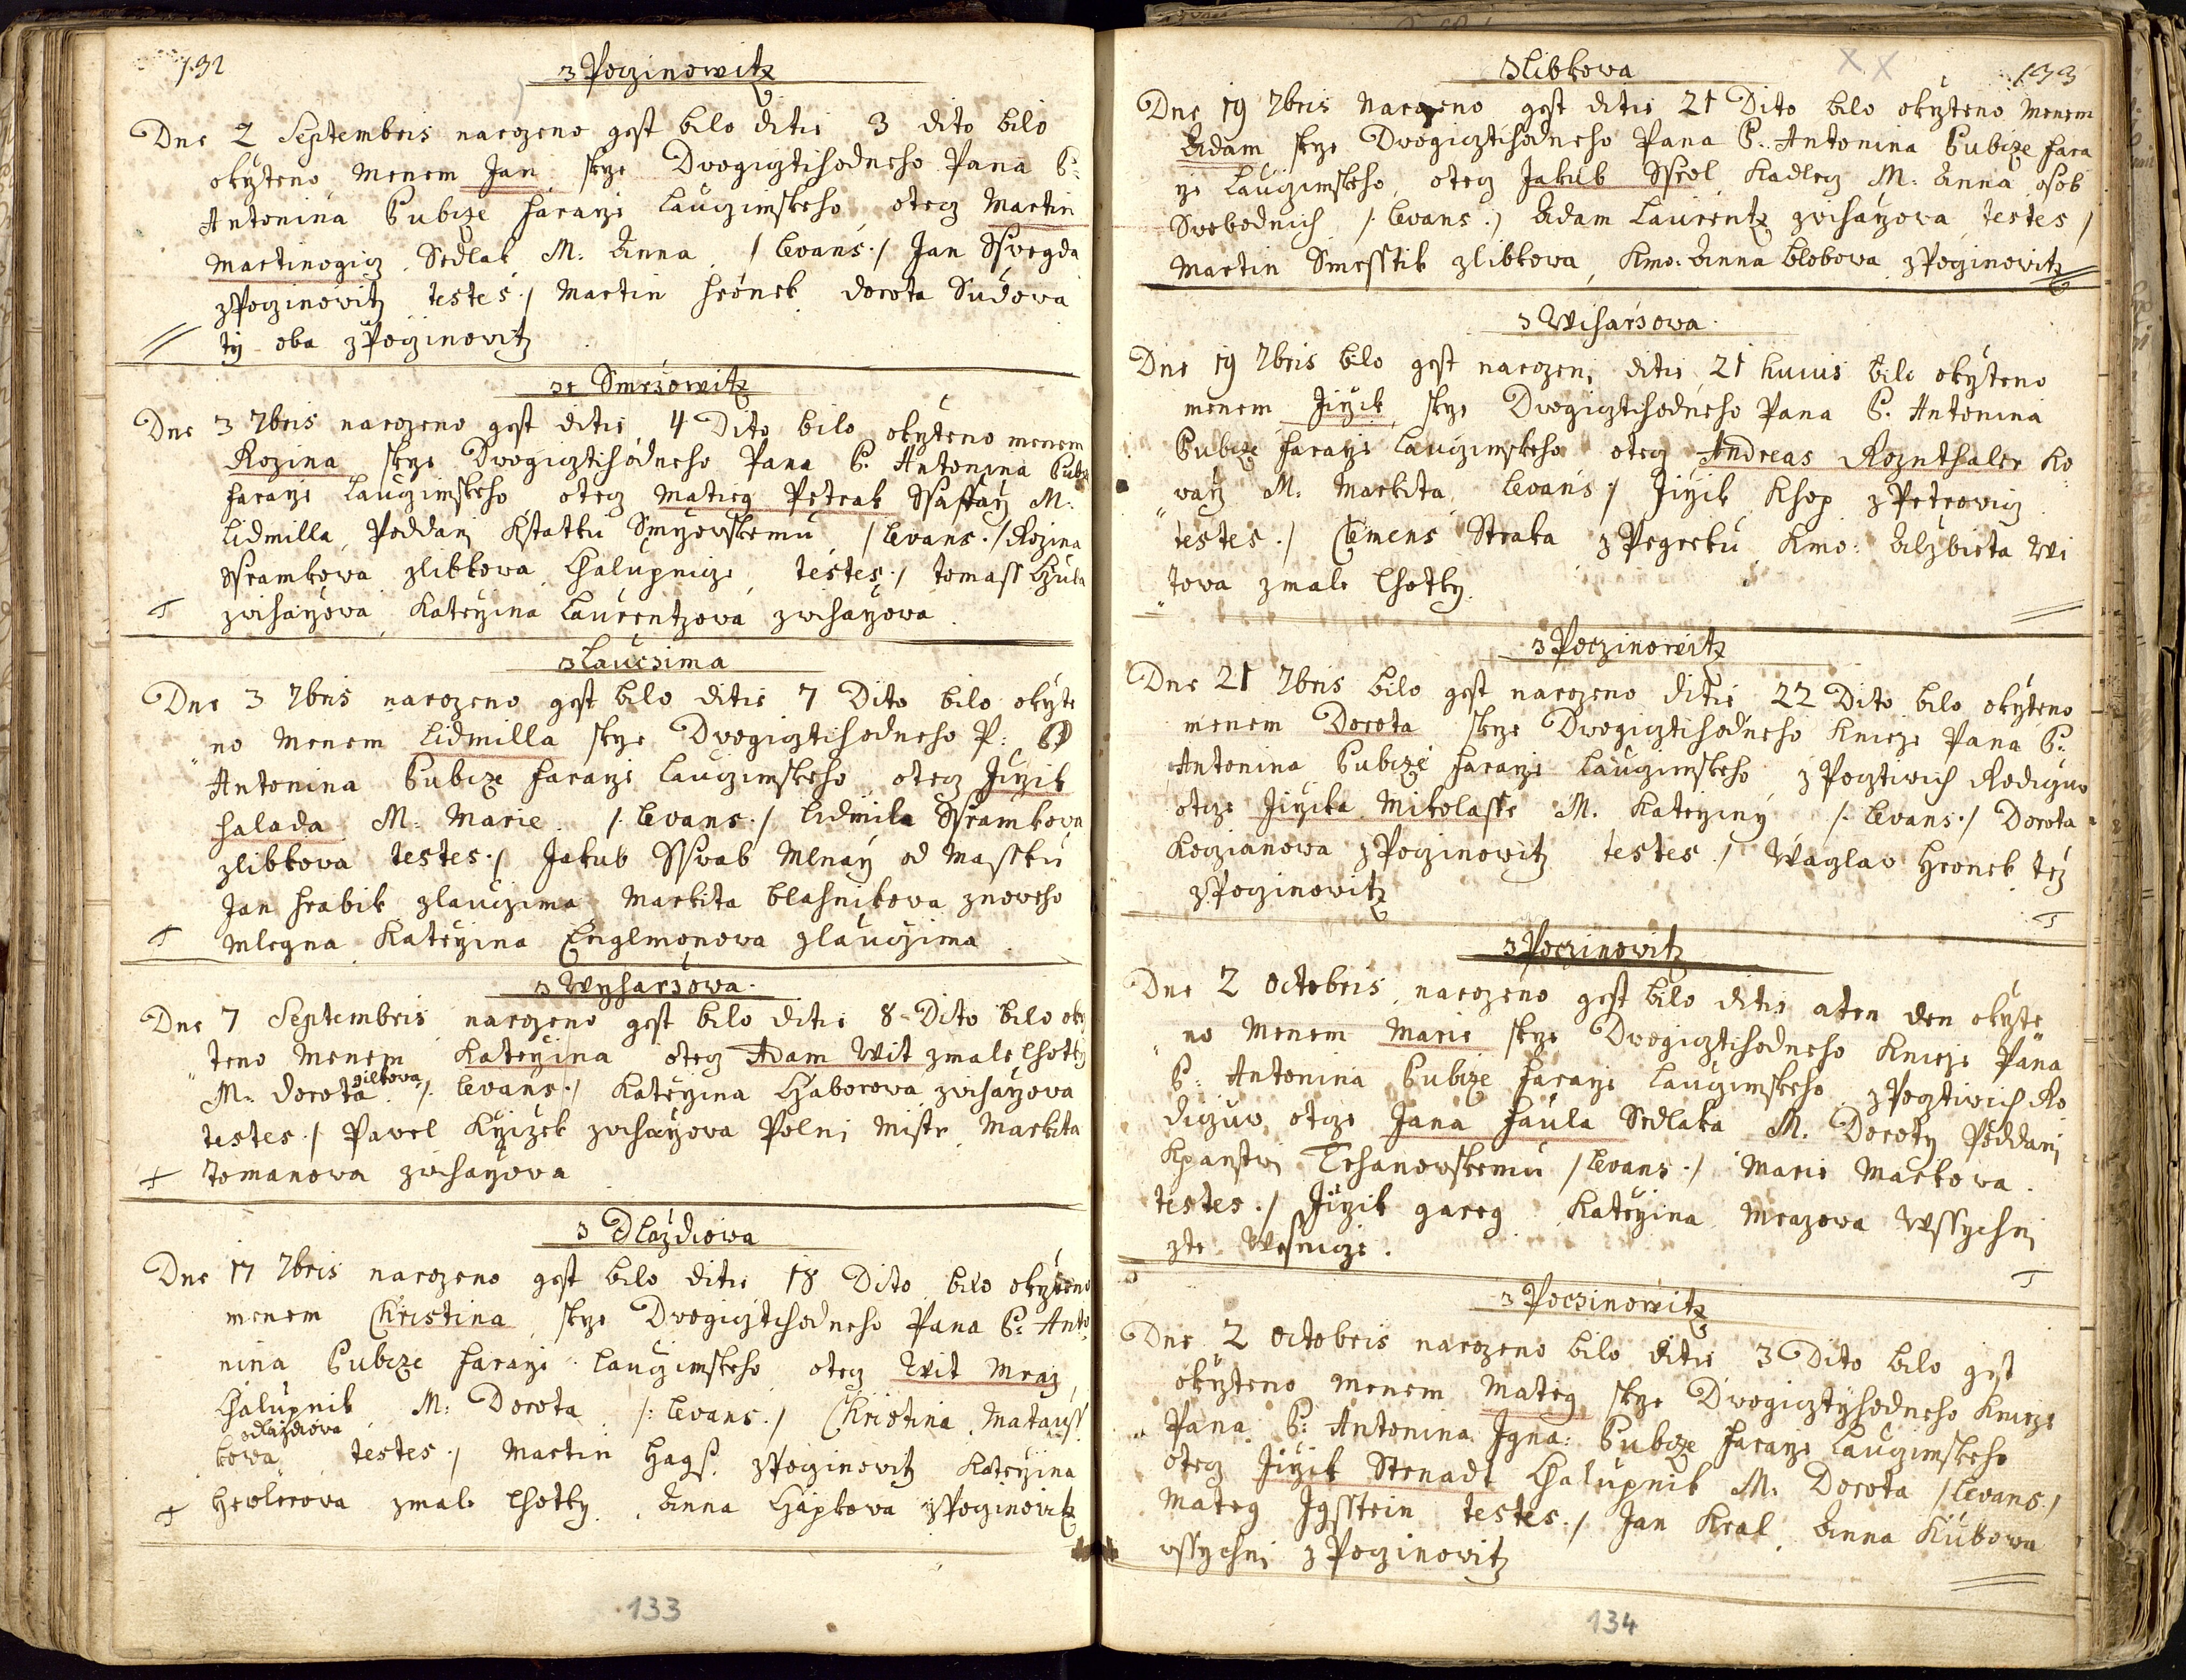 132
z Poczinowitz
Dne 2 Septembris narozeno gest bilo ditie 3 dito bilo
okrzteno menem Jan skrze Dwogicztihodneho Pana P:
Antonina Bubicze Faraze Lauczimskeho, otecz Martin
Martinogicz Sedlak M: Anna /Levans./ Jan Sswegda
z Poczinowitz testes./ Martin Hronek dorota Sudowa
ty oba z Poczinowitz
ze Smrzowitz
Dne 3 7bris narozeno gest ditie 4 Dito bilo okrzteno menem
Rozina skrze Dwogicztihodneho Pana P: Antonina Bubi
Faraze Lauczimskeho otecz Matieg Petrak Ssaffarz M:
Lidmilla Poddani Kstatku Smrzowskemu /Levans./ Rozina
Ssramkowa zlibkowa Chalupnicze testes./ tomass Czula
zwiharzowa Katerzina Laurentzowa zwiharzowa
z Laucsima
Dne 3 7bris narozeno gest bilo ditie 7 Dito bilo okrzte
no Menem Lidmilla skrze Dwogicztihodneho P: P
Antonina Bubicze Faraze Lauczimskeho otecz Jirzik
Halada M: Marie /:Levans./ Lidmila Ssramkowa
zlibkowa testes./ Jakub Sswab Mlnarz od Massku
Jan Hrabik zlauczima Markita blahnikowa znoweho
Mlegna Katerzina Englmonowa zlauczima
z Wyharsowa
Dne 7 Septembris narozeno gest bilo ditie 8 Dito bilo okrz
teno Menem Katerzina otecz Adam Wit zmale lhotky
M: dorota /:Levans./ Katerzina Chaborowa zwiharzowa
testes./ Pawel Krzizek zwiharzowa Polni Mistr Markita
Tomanowa zwiharzowa
z Dlazdiowa
Dne 17 7bris narozeno gest bilo ditie 18 Dito bilo okrzteno
menem Christina skrze Dwogicztihodneho Pana P: Anto
nina Bubicze Faraze Lauczimskeho otecz Wit Mraz
Chalupnik M: Dorota /:Levans./ Christina Matauss
zdlazdiowa
kowa testes./ Martin Hags. z Poczinowitz Katerzina
Hewlerowa zmale lhotky Anna Chapkowa z Poczinowitz
133
133
zlibkowa
Dne 19 7bris Narozeno gest ditie 21 Dito bilo okrzteno Menem
Adam skrze Dwogicztihodneho Pana P: Antonina Bubicze Fara
rze Lauczimskeho, otecz Jakub Ssrol Kadlecz M: Anna osob
Swobodnich /:Levans./ Adam Laurentz zwiharzowa testes /
Martin Smesstik zlibkowa, Kmo: Anna blobowa z Poczinowitz
z Wiharsowa
Dne 19 7bris bilo gest narozeni ditie 21 huius bilo okrzteno
menem Jirzik skrze Dwogicztihodneho Pana P. Antonina
Bubicze Faraze Lauczimskeho otecz Andreas Roznthaler Ko
warz M: Markita Levans / Jirzik Khop z Petrowicz
testes./ Clemens Straka z Pegreku Kmo: Alzbieta Wi
towa zmale lhotky
z Poczinowitz
Dne 21 7bris bilo gest narozeno ditie 22 Dito bilo okrzteno
menem Dorota skrze Dwogicztihodneho Knieze Pana P:
Antonina Bubicze Faraze Lauczimskeho z Pocztiwich Rodiczuw
otcze Jirzika Mikolasse M. Katerziny /:Levans./ Dorota
Koczianowa z Poczinowitz testes./ Waczlaw Hronek tez
z Poczinowitz
z Poczinowitz
Dne 2 octobris narozeno gest bilo ditie a ten den okrzte
no Menem Marie skrze Dwogicztihodneho Knieze Pana
P: Antonina Bubicze Faraze Lauczimskeho z Pocztiwich Ro
diczuw otcze Jana Paula Sedlaka M. Doroty Poddani
Kpanstwi Trhanowskemu /Levans./ Marie Markowa
testes./ Jirzik gareg Katerzina Mrazowa Wssychni
zte Wesnicze.
z Pocsinowitz
Dne 2 octobris narozeno bilo ditie 3 Dito bilo gest
okrzteno menem Mateg skrze Dwogicztyhodneho Knieze
Pana P: Antonina Igna: Bubicze Faraze Lauczimskeho
otecz Jirzik Stenadt Chalupnik M. Dorota /Levans./
Mateg Jgsstein testes./ Jan Kral Anna Kubowa
wssychni z Poczinowitz
134